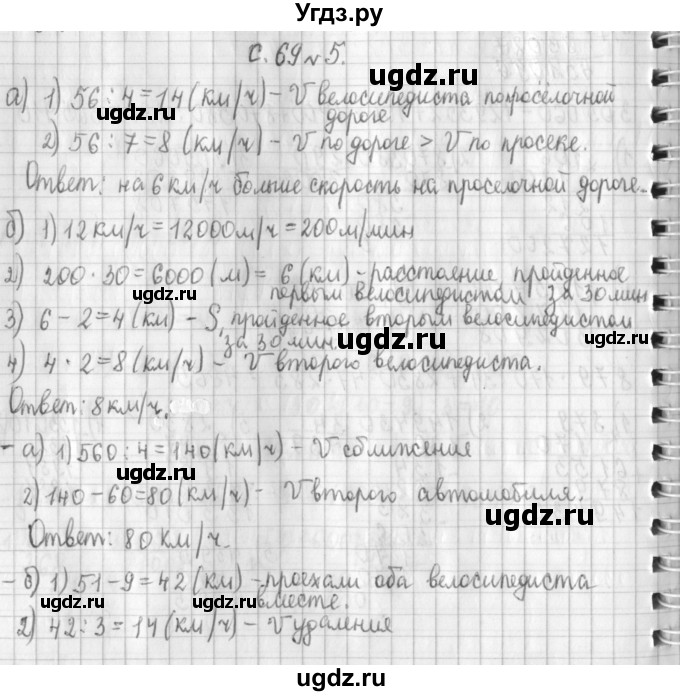 Угдз.ру
с. 69 № 5.
а) 1) 56 : 4 = 14 (км/ч) - V велосипедиста по просёлочной
дороге
2) 56 : 7 = 8 (км/ч) - V по дороге > V по просеке.
Ответ: на 6 км/ч больше скорость на проселочной дороге.
б) 1) 12 км/ч = 12000 м/ч = 200 м/мин
2) 200 · 30 = 6000 (м) = 6 (км) - расстояние пройденное
первым велосипедистом за 30 мин
3) 6 - 2 = 4 (км) - S, пройденное вторым велосипедистом
за 30 мин.
4) 4 · 2 = 8 (км/ч) - V второго велосипедиста.
Ответ: 8 км/ч.
- а) 1) 560 : 4 = 140 (км/ч) - V сближения
2) 140 - 60 = 80 (км/ч) - V второго автомобиля.
Ответ: 80 км/ч.
- б) 1) 51 - 9 = 42 (км) - проехали оба велосипедиста
вместе.
2) 42 : 3 = 14 (км/ч) - V удаления
ugdz.ru
ugdz.ru
ugdz.ru
ugdz.ru
ugdz.ru
ugdz.ru
ugdz.ru
ugdz.ru
ugdz.ru
ugdz.ru
ugdz.ru